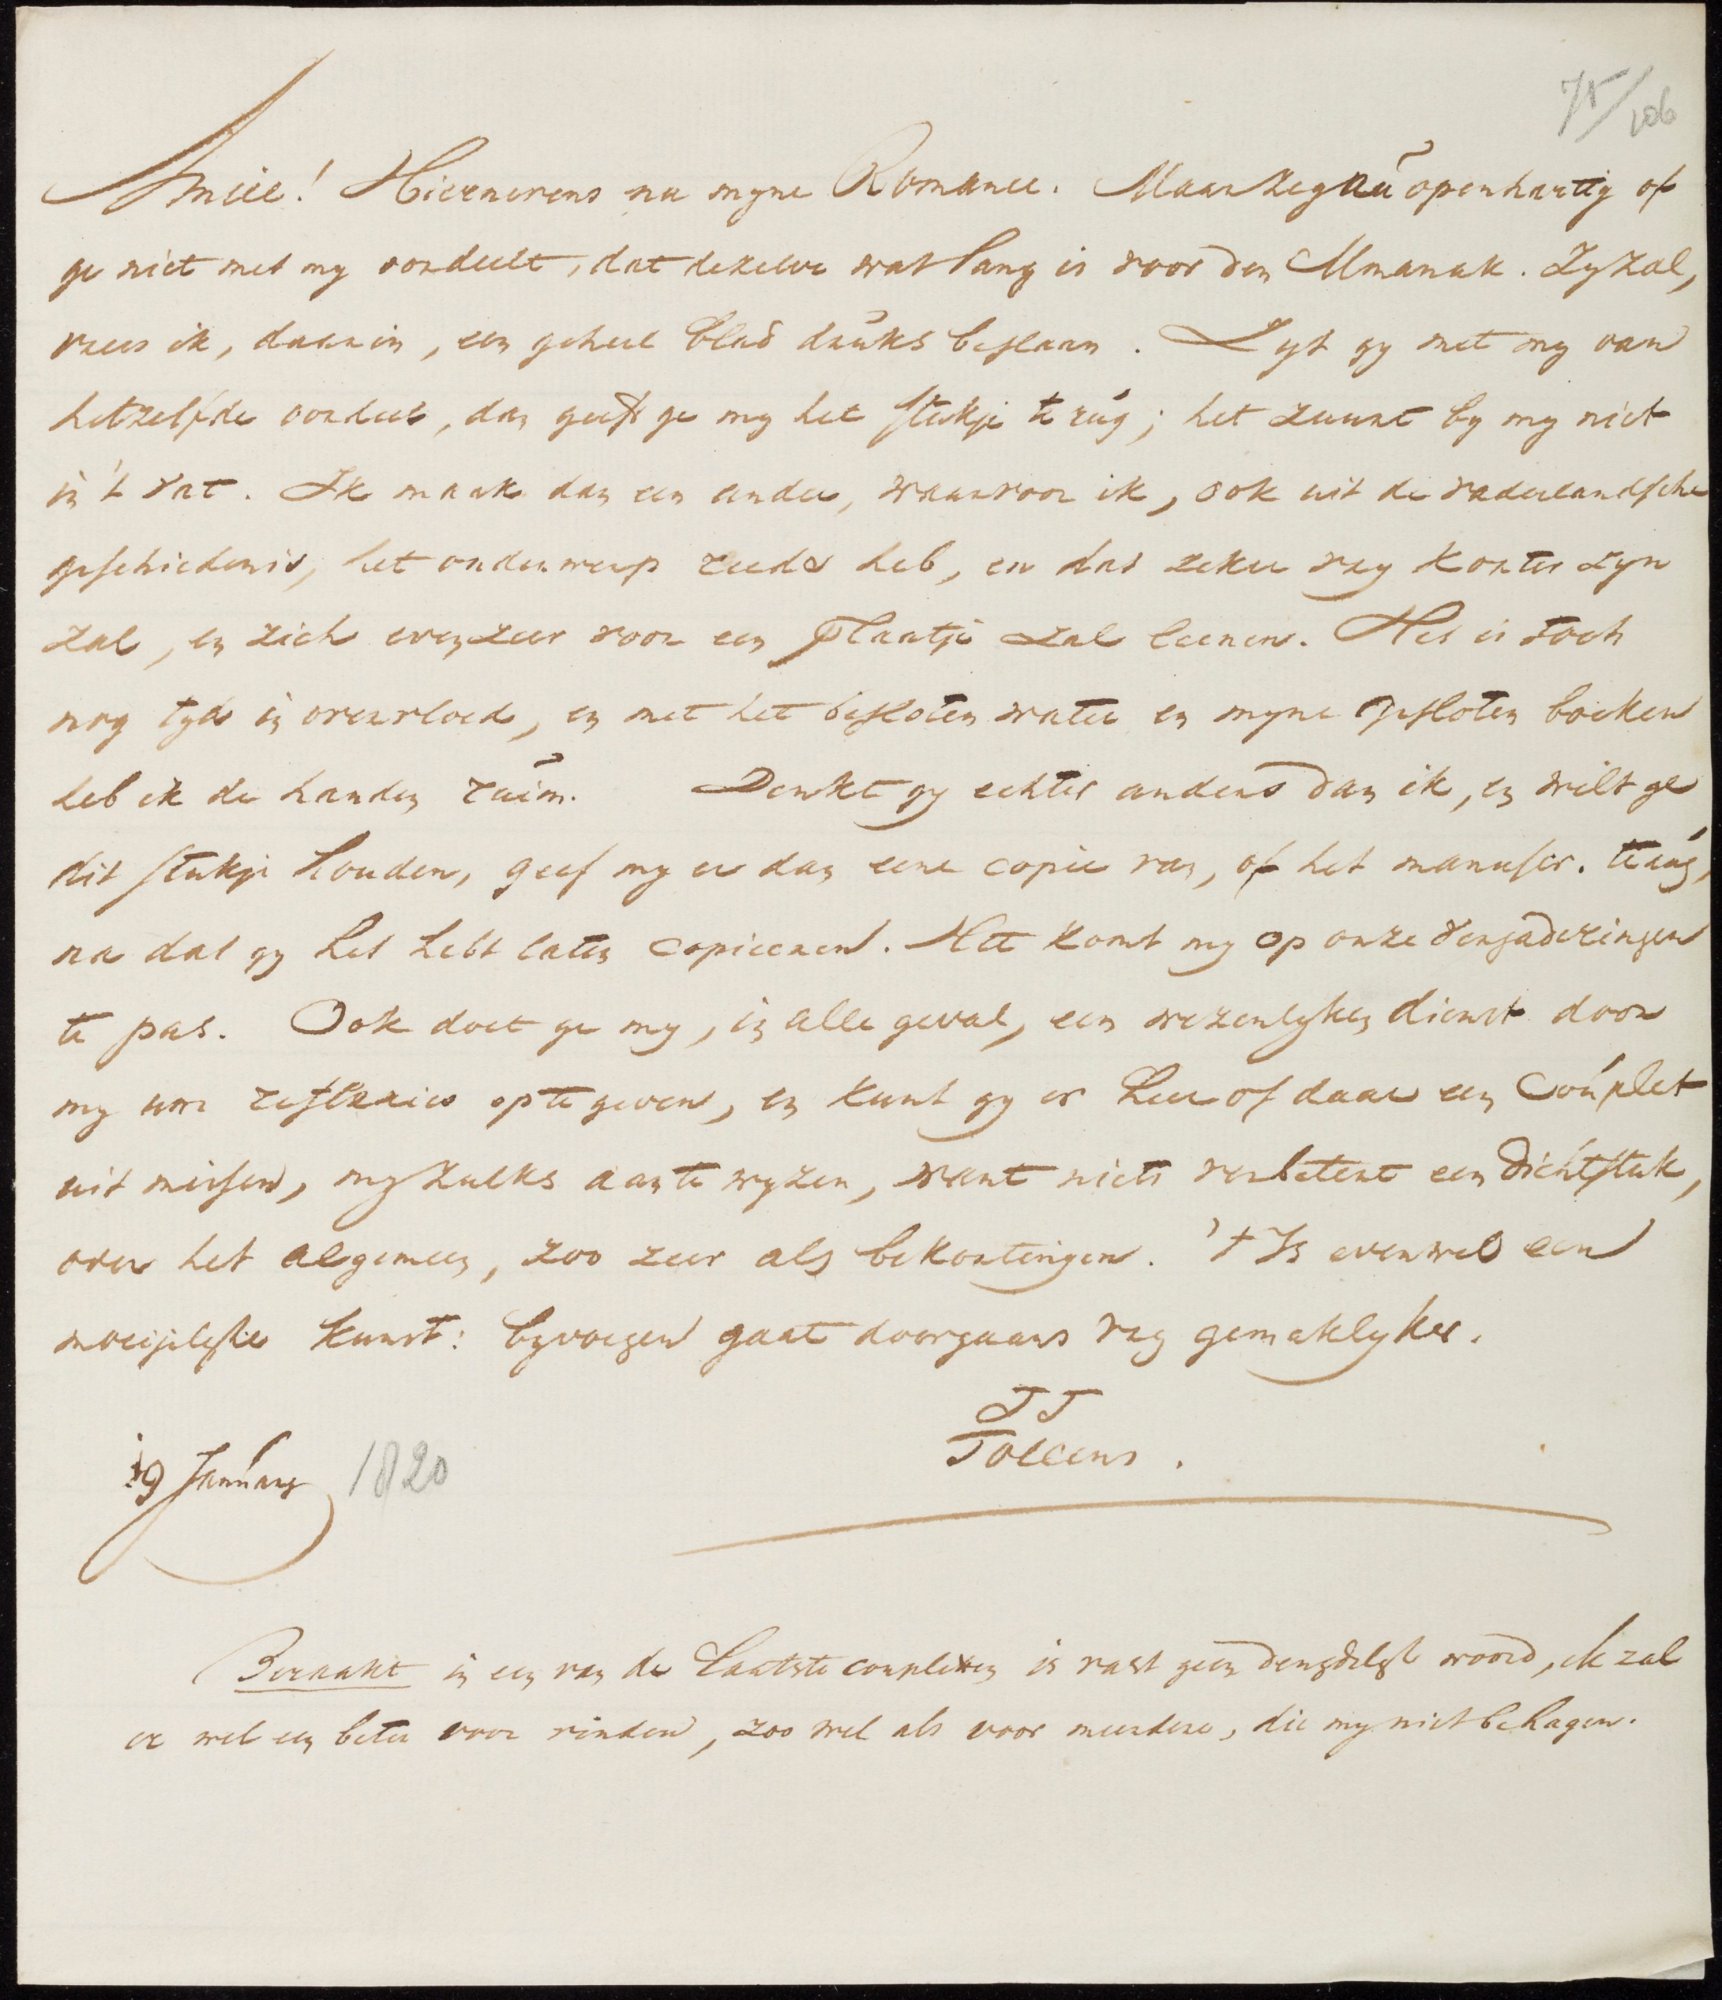 75/106
Amice! Hiernevens nu myne Romance. Maar zeg nu openhartig of
ge niet met my oordeelt, dat dezelve wat lang is voor den Almanak. Zy zal,
vrees ik, daarin, een geheel blad druks beslaan. Zyt gy met my van
hetzelfde oordeel, dan geeft ge my het stukje terug; het zuurt by my niet
in 't vat. Ik maak dan een ander, waarvoor ik, ook uit de vaderlandsche
geschiedenis, het onderwerp reeds heb, en dat zeker vry korter zyn
zal, en zich evenzeer voor een plaatje zal leenen. Het is toch
nog tyd in overvloed, en met het besloten water en myne gesloten boeken
heb ik de handen ruim. Denkt gy echter anders dan ik, en wilt ge
dit stukje houden, geef my er dan eene copie van, of het manuscr. terug,
na dat gy het hebt laten copieeren. Het komt my op onze vergaderingen
te pas. Ook doet ge my, in alle geval, een wezenlyken dienst door
my uwe reflexies op te geven, en kunt gy er hier of daar een Couplet
uit missen, my zulks aan te wyzen, want niets verbetert een dichtstuk,
over het algemeen, zoo zeer als bekortingen. 't Is evenwel een
moeijelyke kunst: byvoegen gaat doorgaans vry gemaklyker.
TT
Tollens.
19 January 1820
in een van de laatste coupletten is vast geen deugdelyk woord, ik zal
er wel een beter voor vinden, zoo wel als voor meerdere, die my niet behagen.